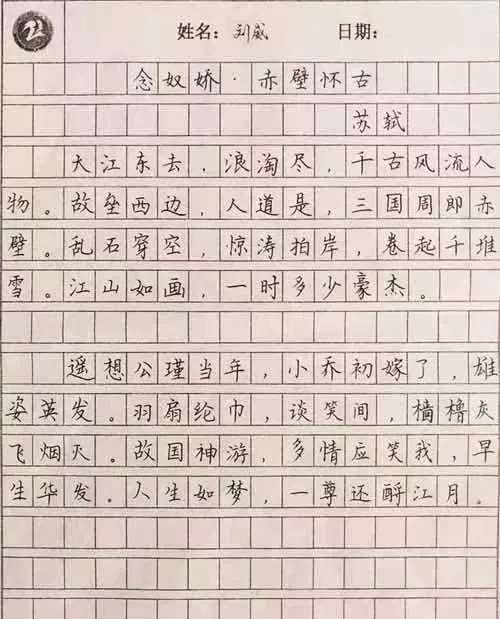 姓名：刘威 日期：
念奴娇·赤壁怀古
苏轼
大江东去，浪淘尽，千古风流人
物。故垒西边，人道是，三国周郎赤
壁。乱石穿空，惊涛拍岸，卷起千堆
雪。江山如画，一时多少豪杰。
遥想公瑾当年，小乔初嫁了，雄
姿英发。羽扇纶巾，谈笑间，樯橹灰
飞烟灭。故国神游，多情应笑我，早
生华发。人生如梦，一尊还酹江月。